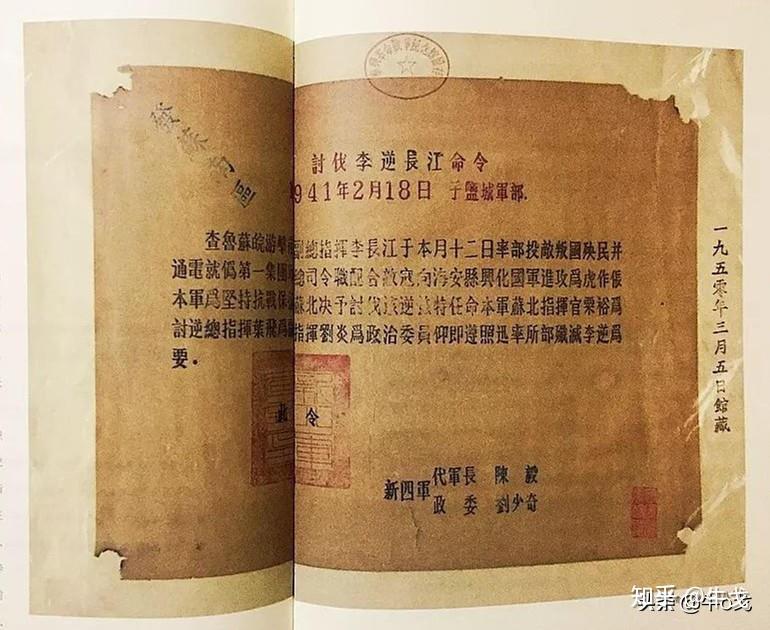 討伐李逆長江命令
1941年2月18日 于鹽城軍部.
查魯蘇皖游擊副總指揮李長江于本月十二日率部投敵叛國殃民并
通電就僞第一集團總司令職配合敵寇向海安縣興化國軍進攻爲虎作倀
本軍爲堅持抗戰保蘇北决予討伐該逆茲特任命本軍蘇北指揮官粟裕爲
討逆總指揮葉飛爲指揮劉炎爲政治委員仰即遵照迅率所部殲滅李逆爲
要.
令
新四軍 代軍長 陳毅
政委 劉少奇
一九五零年三月五日館藏
知乎